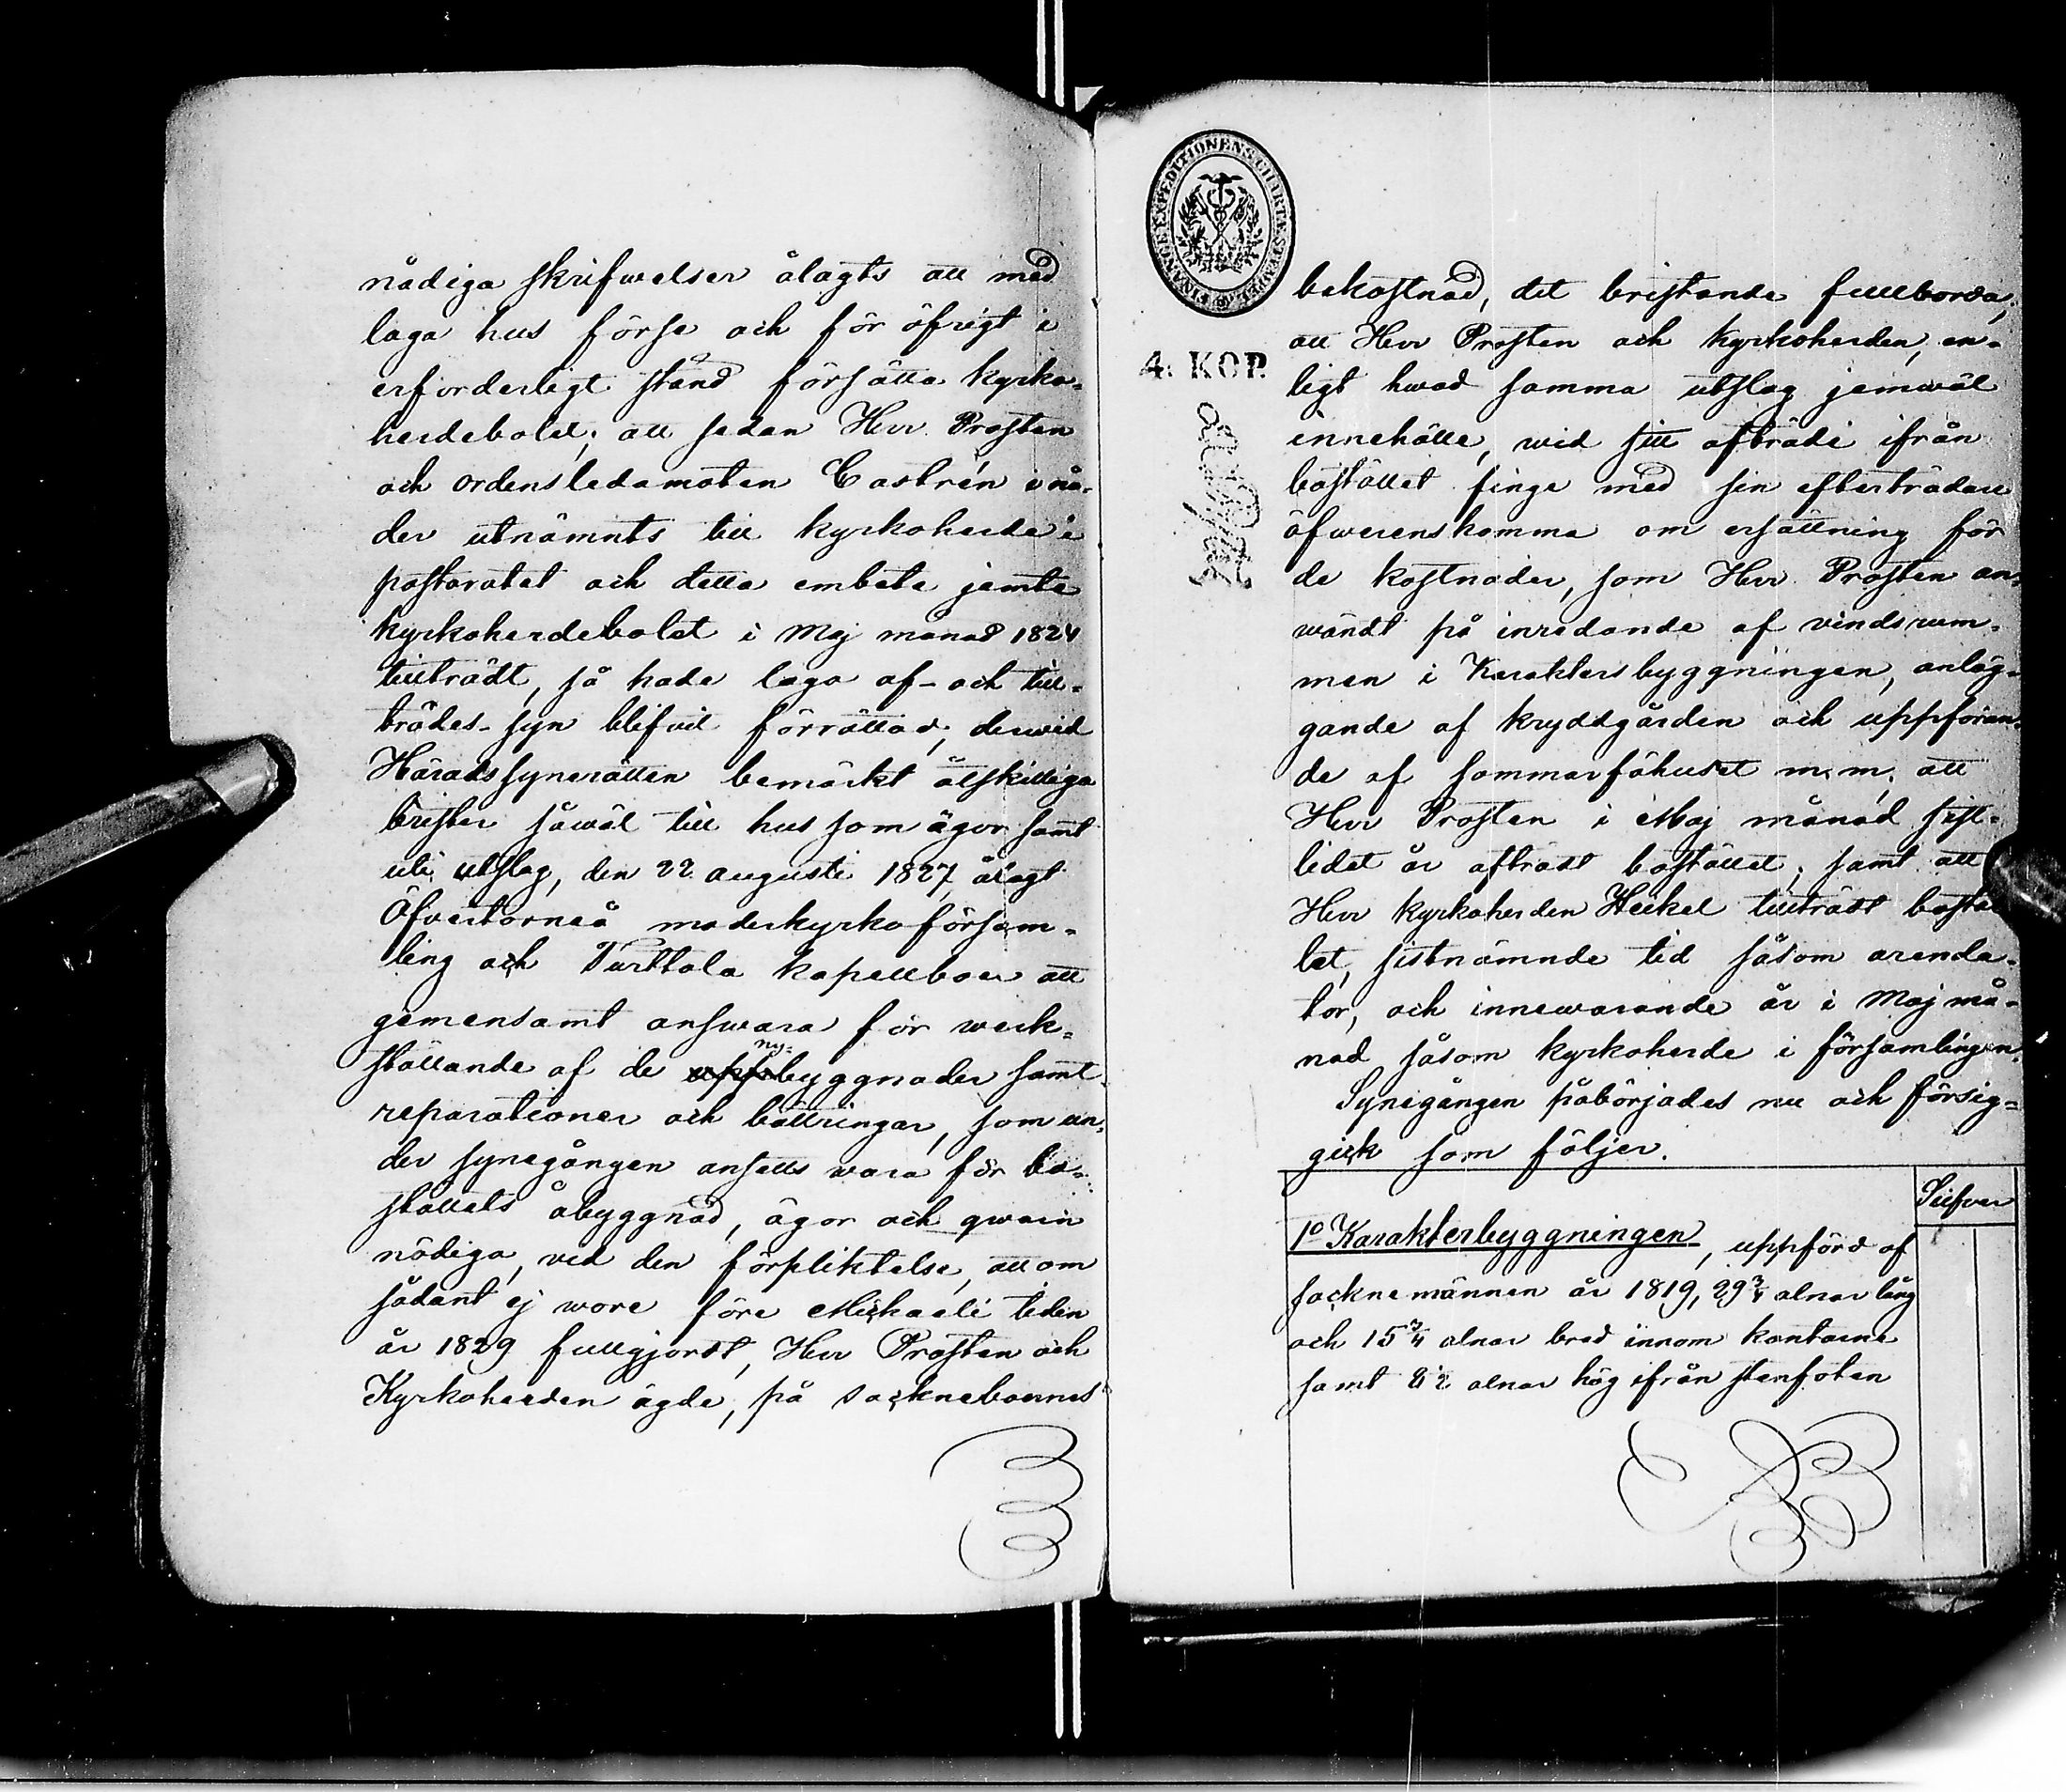 nådiga skrifwelser ålagts att med
laga hus förse och för öfrigt i
erforderligt stånd försätta kyrko-
herdebolet; att sedan Herr Prosten
och ordensledamoten Castrén i nå-
der utnämnts till kyrkoherde i
pastoratet och detta embete jemte
kyrkoherdebolet i Maj månad 1824
tillträdt, så hade laga af- och till-
trädes-syn blifvit förrättad, derwid
Häradssynerätten bemärkt åtskilliga
brister såwäl till hus som ägor samt
uti utslag, den 22 augusti 1827, ålagt
Öfvertorneå moderkyrko försam-
ling och Turttola kapellboer att
gemensamt answara för werk-
ställande af de ny-byggnader samt
reparationer och bättringar, som un-
der synegången ansetts vara för bo-
ställets åbyggnad, ägor och qwarn
nödiga, vid den förpliktelse, att om
sådant ej wore före Michaeli tiden
år 1829 fullgjordt, Herr Prosten och
Kyrkoherden ägde, på sockneboernes
FINANCE EXPEDITIONENS CHARTÆ STEMPEL
4. KOP.
bekostnad, det bristande fullborda;
att Herr Prosten och Kyrkoherden, en-
ligt hwad samma utslag jemwäl
innehölle, wid sitt afträde ifrån
bostället finge med sin efterträdare
öfwerenskomma om ersättning för
de kostnader, som Herr Prosten an-
wändt på inredande af vindsrum-
men i Karaktersbyggningen, anläg-
gande af kryddgården och uppföran-
de af sommarfähuset m.m; att
Herr Prosten i Maj månad sist-
lidet år afträdt bostället; samt att
Herr Kyrkoherden Heikel tillträdt bostäl
let, sistnämnde tid såsom arenda-
tor, och innewarande år i Maj må-
nad såsom kyrkoherde i församlingen.
Synegången påbörjades nu och försig-
gick som följer.
Silfver
1o Karakterbyggningen, uppförd af
socknemännen år 1819, 29 3/4 alnar lång
och 15 3/4 alnar bred innom knutarne
samt 8 1/2 alnar hög ifrån stenfoten